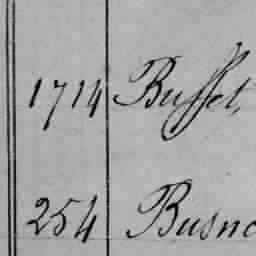 1714 Buffet,
254 Busno